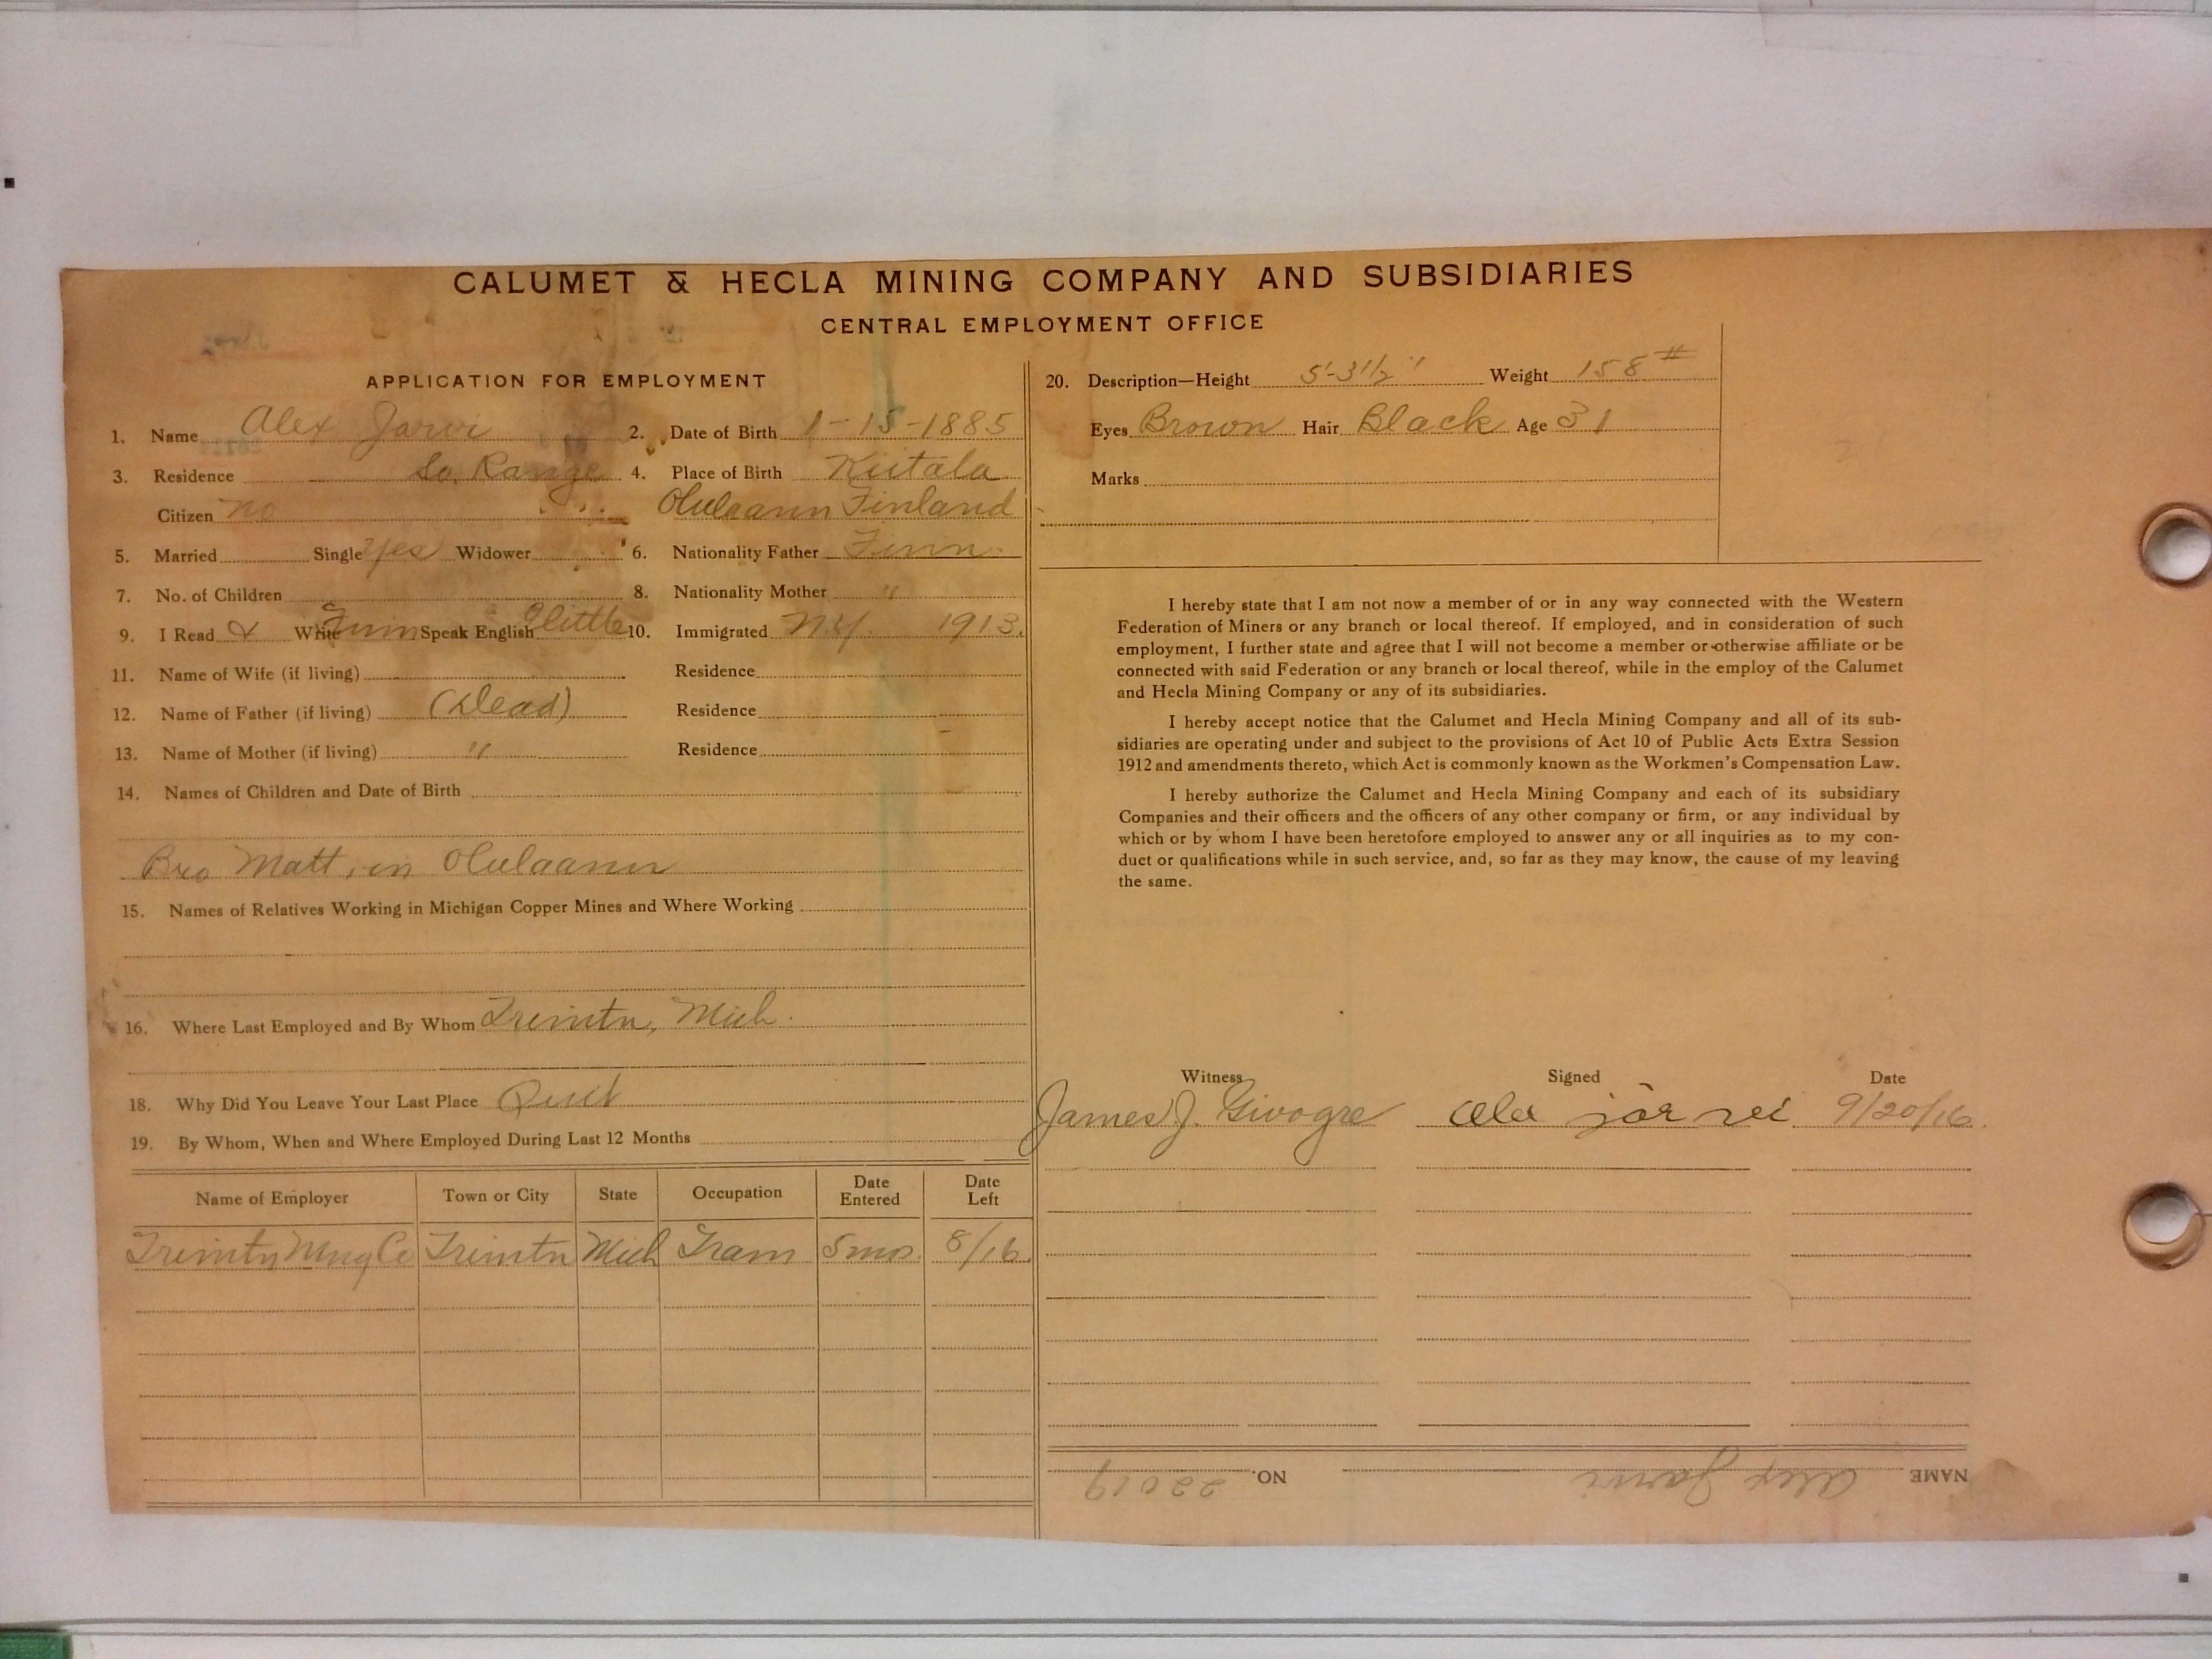 CALUMET & HECLA MINING COMPANY AND SUBSIDIARIES
CENTRAL EMPLOYMENT OFFICE
APPLICATION FOR EMPLOYMENT
1. Name Alex Jarvi 2. Date of Birth 1-15-1885
3. Residence So. Range 4. Place of Birth Kiitala
Citizen no Oulaann Finland
5. Married Single Yes Widower 6. Nationality Father Finn.
7. No. of Children 8. Nationality Mother "
9. I Read & Write Finn Speak English Little 10. Immigrated N.Y. 1913.
11. Name of Wife (if living) Residence
12. Name of Father (if living) (Dead) Residence
13. Name of Mother (if living) " Residence
14. Names of Children and Date of Birth
Bro Matt, in Oulaann
15. Names of Relatives Working in Michigan Copper Mines and Where Working
16. Where Last Employed and By Whom Trimtn, Mich.
18. Why Did You Leave Your Last Place Quit
19. By Whom, When and Where Employed During Last 12 Months
Name of Employer Town or City State Occupation Date Entered Date Left
Trimtn Mng Co Trimtn Mich Tram 5mos. 8/16.
20. Description—Height 5'-3 1/2" Weight 158#
Eyes Brown Hair Black Age 31
Marks
I hereby state that I am not now a member of or in any way connected with the Western
Federation of Miners or any branch or local thereof. If employed, and in consideration of such
employment, I further state and agree that I will not become a member or otherwise affiliate or be
connected with said Federation or any branch or local thereof, while in the employ of the Calumet
and Hecla Mining Company or any of its subsidiaries.
I hereby accept notice that the Calumet and Hecla Mining Company and all of its sub-
sidiaries are operating under and subject to the provisions of Act 10 of Public Acts Extra Session
1912 and amendments thereto, which Act is commonly known as the Workmen's Compensation Law.
I hereby authorize the Calumet and Hecla Mining Company and each of its subsidiary
Companies and their officers and the officers of any other company or firm, or any individual by
which or by whom I have been heretofore employed to answer any or all inquiries as to my con-
duct or qualifications while in such service, and, so far as they may know, the cause of my leaving
the same.
Witness Signed Date
James J. Givogre 9/20/16.
NAME Alex Jarvi NO. 22019